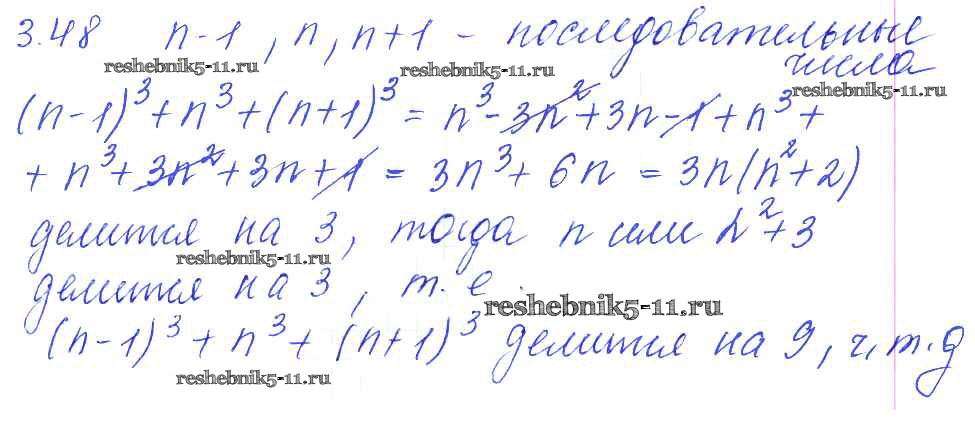 3.48 n-1, n, n+1 - последовательные
reshebnik5-11.ru reshebnik5-11.ru числа
reshebnik5-11.ru
(n-1)³+n³+(n+1)³ = n³-3n²+3n-1+n³+
+ n³+3n²+3n+1 = 3n³+6n = 3n(n²+2)
делится на 3, тогда n или n²+3
reshebnik5-11.ru
делится на 3, т.е.
reshebnik5-11.ru
(n-1)³+n³+(n+1)³ делится на 9, ч.т.д
reshebnik5-11.ru